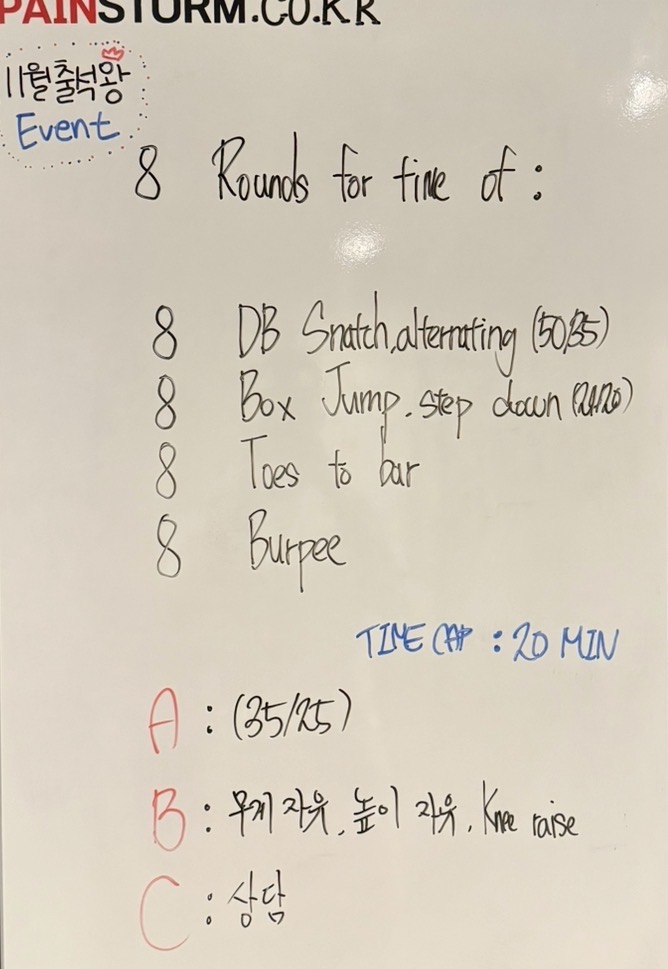 PAINSTORM.CO.KR
11월 출석왕
Event
8 Rounds for time of :
8 DB Snatch, alternating (50/35)
8 Box Jump. step down (24/20)
8 Toes to bar
8 Burpee
TIME CAP : 20 MIN
A : (35/25)
B : 무게 자유, 높이 자유, Knee raise
C : 상담